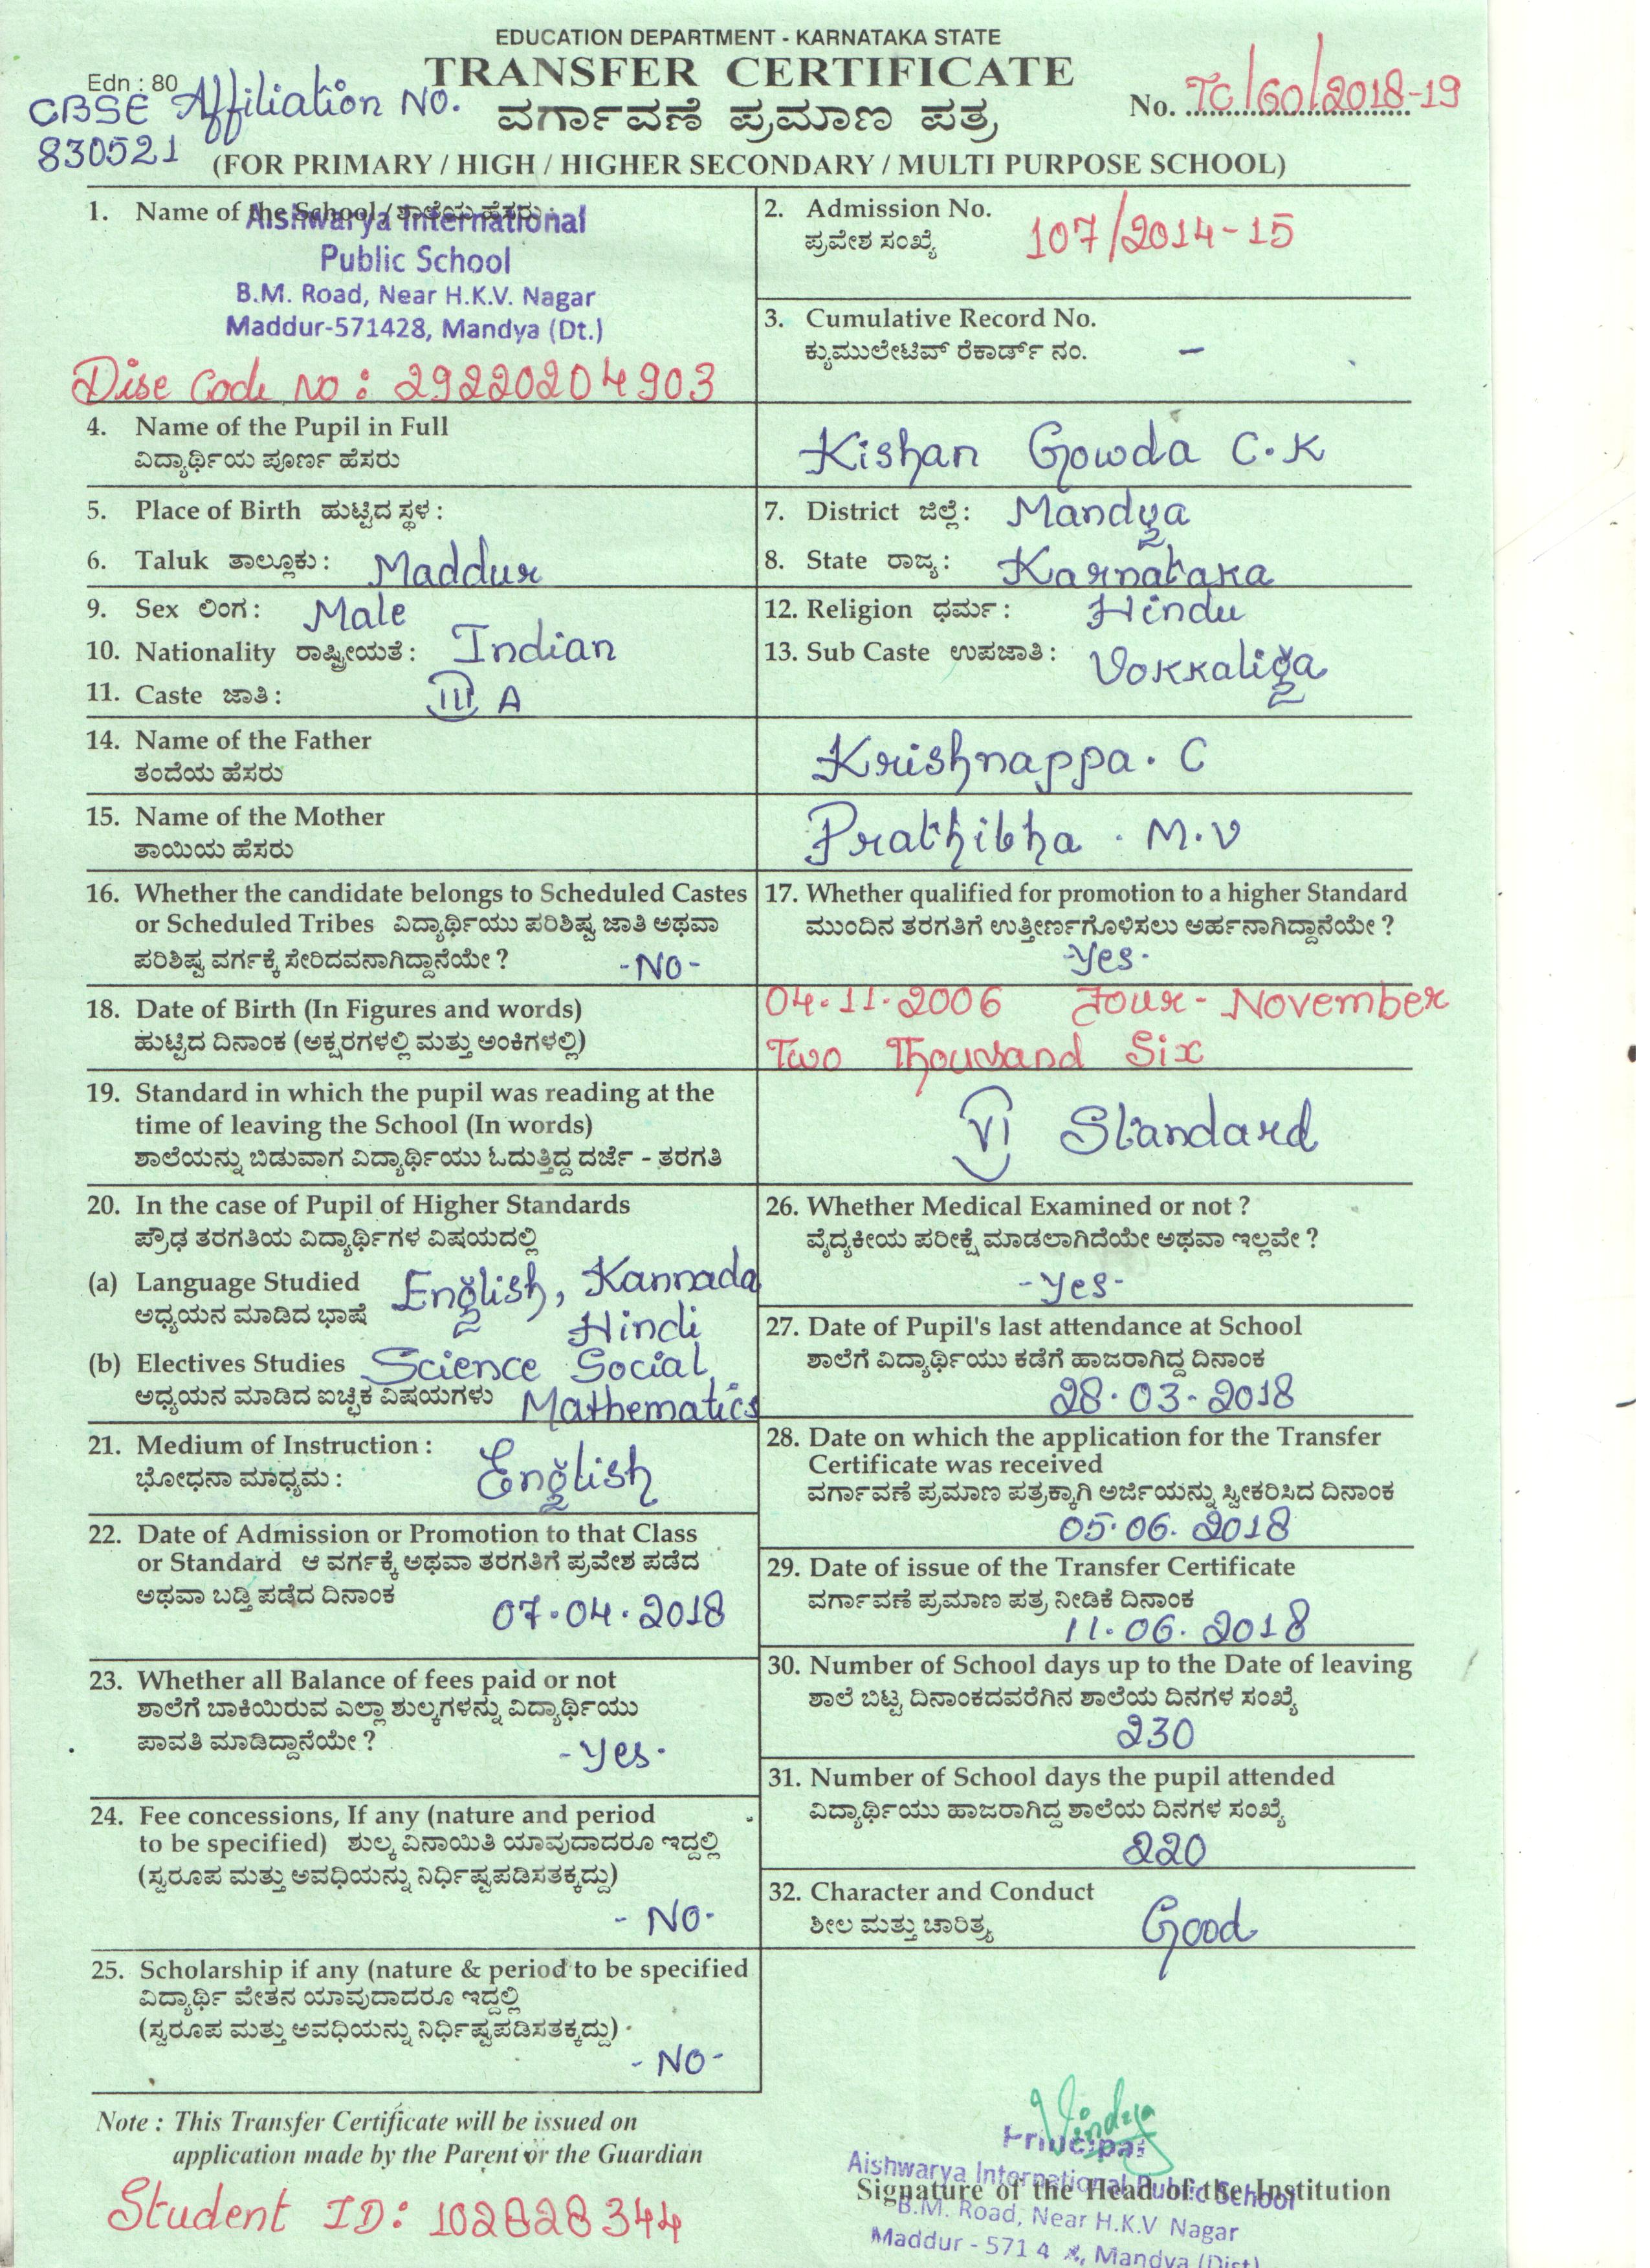 EDUCATION DEPARTMENT - KARNATAKA STATE
Edn : 80
TRANSFER CERTIFICATE
CBSE Affiliation No.
830521
ವರ್ಗಾವಣೆ ಪ್ರಮಾಣ ಪತ್ರ
No. TC/60/2018-19
(FOR PRIMARY / HIGH / HIGHER SECONDARY / MULTI PURPOSE SCHOOL)
1. Name of the School / ಶಾಲೆಯ ಹೆಸರು :
Aishwarya International
Public School
B.M. Road, Near H.K.V. Nagar
Maddur-571428, Mandya (Dt.)
Dise Code No : 29220204903
2. Admission No.
ಪ್ರವೇಶ ಸಂಖ್ಯೆ 107/2014-15
3. Cumulative Record No.
ಕ್ಯುಮುಲೇಟಿವ್ ರೆಕಾರ್ಡ್ ನಂ. -
4. Name of the Pupil in Full
ವಿದ್ಯಾರ್ಥಿಯ ಪೂರ್ಣ ಹೆಸರು
Kishan Gowda C.K
5. Place of Birth ಹುಟ್ಟಿದ ಸ್ಥಳ :
6. Taluk ತಾಲ್ಲೂಕು : Maddur
7. District ಜಿಲ್ಲೆ : Mandya
8. State ರಾಜ್ಯ : Karnataka
9. Sex ಲಿಂಗ : Male
10. Nationality ರಾಷ್ಟ್ರೀಯತೆ : Indian
11. Caste ಜಾತಿ : III A
12. Religion ಧರ್ಮ : Hindu
13. Sub Caste ಉಪಜಾತಿ : Vokkaliga
14. Name of the Father
ತಂದೆಯ ಹೆಸರು
Krishnappa. C
15. Name of the Mother
ತಾಯಿಯ ಹೆಸರು
Prathibha . M.V
16. Whether the candidate belongs to Scheduled Castes
or Scheduled Tribes ವಿದ್ಯಾರ್ಥಿಯು ಪರಿಶಿಷ್ಟ ಜಾತಿ ಅಥವಾ
ಪರಿಶಿಷ್ಟ ವರ್ಗಕ್ಕೆ ಸೇರಿದವನಾಗಿದ್ದಾನೆಯೇ ? -No-
17. Whether qualified for promotion to a higher Standard
ಮುಂದಿನ ತರಗತಿಗೆ ಉತ್ತೀರ್ಣಗೊಳಿಸಲು ಅರ್ಹನಾಗಿದ್ದಾನೆಯೇ ?
-Yes-
18. Date of Birth (In Figures and words)
ಹುಟ್ಟಿದ ದಿನಾಂಕ (ಅಕ್ಷರಗಳಲ್ಲಿ ಮತ್ತು ಅಂಕಿಗಳಲ್ಲಿ)
04.11.2006 Four - November
Two Thousand Six
19. Standard in which the pupil was reading at the
time of leaving the School (In words)
ಶಾಲೆಯನ್ನು ಬಿಡುವಾಗ ವಿದ್ಯಾರ್ಥಿಯು ಓದುತ್ತಿದ್ದ ದರ್ಜೆ - ತರಗತಿ
VI Standard
20. In the case of Pupil of Higher Standards
ಪ್ರೌಢ ತರಗತಿಯ ವಿದ್ಯಾರ್ಥಿಗಳ ವಿಷಯದಲ್ಲಿ
(a) Language Studied English, Kannada
ಅಧ್ಯಯನ ಮಾಡಿದ ಭಾಷೆ Hindi
(b) Electives Studies Science Social
ಅಧ್ಯಯನ ಮಾಡಿದ ಐಚ್ಛಿಕ ವಿಷಯಗಳು Mathematics
21. Medium of Instruction :
ಭೋಧನಾ ಮಾಧ್ಯಮ : English
22. Date of Admission or Promotion to that Class
or Standard ಆ ವರ್ಗಕ್ಕೆ ಅಥವಾ ತರಗತಿಗೆ ಪ್ರವೇಶ ಪಡೆದ
ಅಥವಾ ಬಡ್ತಿ ಪಡೆದ ದಿನಾಂಕ
07.04.2018
23. Whether all Balance of fees paid or not
ಶಾಲೆಗೆ ಬಾಕಿಯಿರುವ ಎಲ್ಲಾ ಶುಲ್ಕಗಳನ್ನು ವಿದ್ಯಾರ್ಥಿಯು
ಪಾವತಿ ಮಾಡಿದ್ದಾನೆಯೇ ? -Yes-
24. Fee concessions, If any (nature and period
to be specified) ಶುಲ್ಕ ವಿನಾಯಿತಿ ಯಾವುದಾದರೂ ಇದ್ದಲ್ಲಿ
(ಸ್ವರೂಪ ಮತ್ತು ಅವಧಿಯನ್ನು ನಿರ್ಧಿಷ್ಟಪಡಿಸತಕ್ಕದ್ದು)
- No-
25. Scholarship if any (nature & period to be specified
ವಿದ್ಯಾರ್ಥಿ ವೇತನ ಯಾವುದಾದರೂ ಇದ್ದಲ್ಲಿ
(ಸ್ವರೂಪ ಮತ್ತು ಅವಧಿಯನ್ನು ನಿರ್ಧಿಷ್ಟಪಡಿಸತಕ್ಕದ್ದು)
- No-
26. Whether Medical Examined or not ?
ವೈದ್ಯಕೀಯ ಪರೀಕ್ಷೆ ಮಾಡಲಾಗಿದೆಯೇ ಅಥವಾ ಇಲ್ಲವೇ ?
-Yes-
27. Date of Pupil's last attendance at School
ಶಾಲೆಗೆ ವಿದ್ಯಾರ್ಥಿಯು ಕಡೆಗೆ ಹಾಜರಾಗಿದ್ದ ದಿನಾಂಕ
28.03-2018
28. Date on which the application for the Transfer
Certificate was received
ವರ್ಗಾವಣೆ ಪ್ರಮಾಣ ಪತ್ರಕ್ಕಾಗಿ ಅರ್ಜಿಯನ್ನು ಸ್ವೀಕರಿಸಿದ ದಿನಾಂಕ
05.06.2018
29. Date of issue of the Transfer Certificate
ವರ್ಗಾವಣೆ ಪ್ರಮಾಣ ಪತ್ರ ನೀಡಿಕೆ ದಿನಾಂಕ
11.06.2018
30. Number of School days up to the Date of leaving
ಶಾಲೆ ಬಿಟ್ಟ ದಿನಾಂಕದವರೆಗಿನ ಶಾಲೆಯ ದಿನಗಳ ಸಂಖ್ಯೆ
230
31. Number of School days the pupil attended
ವಿದ್ಯಾರ್ಥಿಯು ಹಾಜರಾಗಿದ್ದ ಶಾಲೆಯ ದಿನಗಳ ಸಂಖ್ಯೆ
220
32. Character and Conduct
ಶೀಲ ಮತ್ತು ಚಾರಿತ್ರ್ಯ Good
Note : This Transfer Certificate will be issued on
application made by the Parent or the Guardian
Student ID: 102828344
Principal
Aishwarya International Public School
Signature of the Head of the Institution
B.M. Road, Near H.K.V Nagar
Maddur - 571 4 Mandya (Dist)